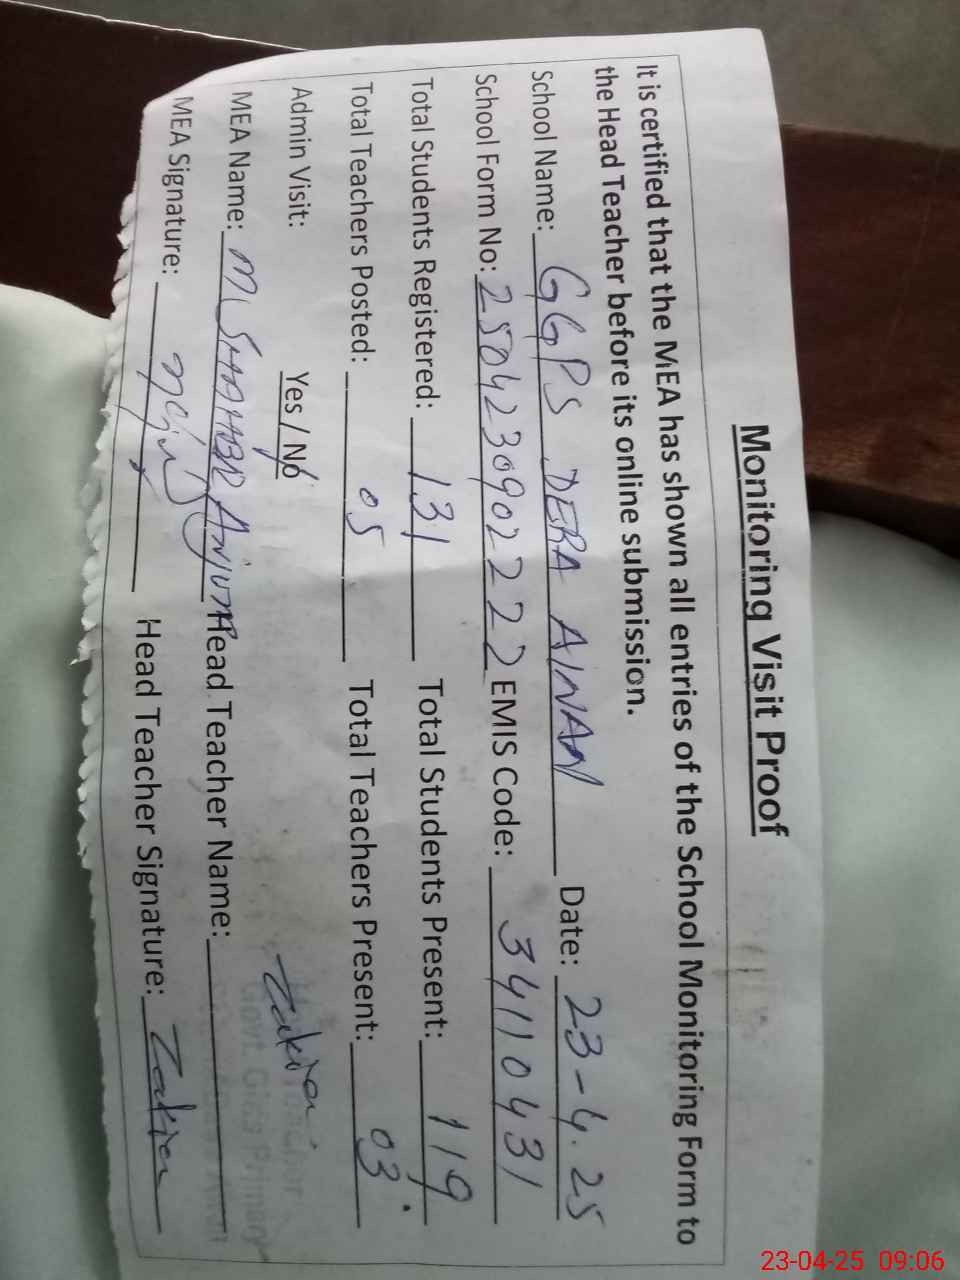 Monitoring Visit Proof
It is certified that the MEA has shown all entries of the School Monitoring Form to
the Head Teacher before its online submission.
School Name: GGPS DERA AINAN Date: 23-4.25
School Form No: 25042309022222 EMIS Code: 34110431
Total Students Registered: 131 Total Students Present: 119
Total Teachers Posted: 05 Total Teachers Present: 03
Admin Visit: Yes / No
MEA Name: M Anjum Head Teacher Name: Zakia
MEA Signature: Head Teacher Signature: Zakia
Govt. Girls Primary
23-04-25 09:06